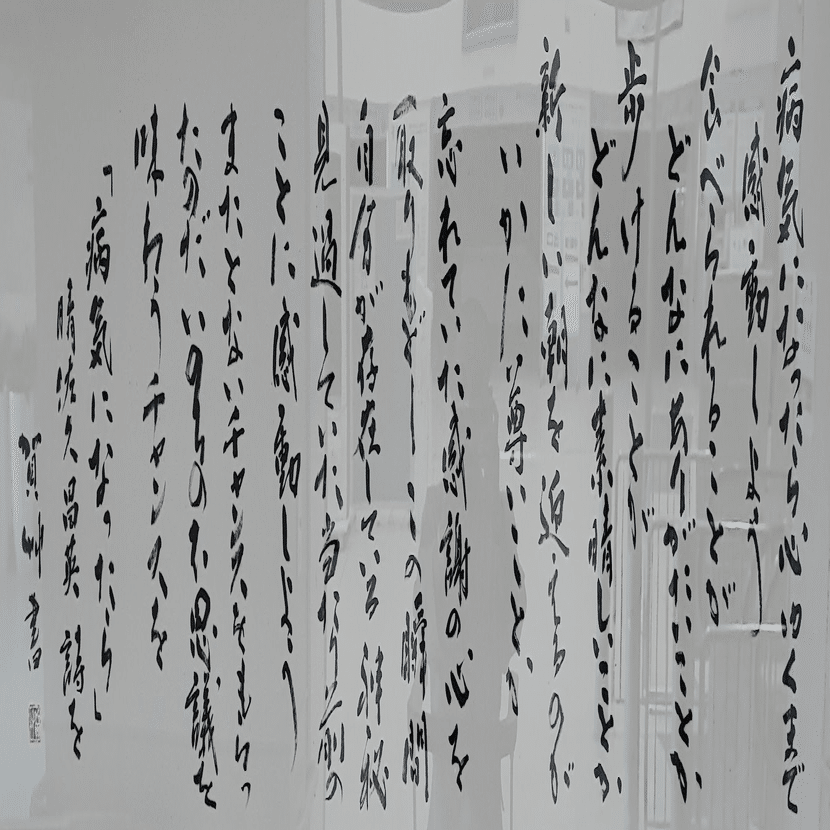 病気になったら心ゆくまで
感動しよう
食べられることが
どんなにありがたいことか
歩けることが
どんなに素晴しいことか
新しい朝を迎えるのが
いかに尊いことか
忘れていた感謝の心を
取りもどしこの瞬間
自分が存在している神秘
見過していた当たり前の
ことに感動しよう
またとないチャンスをもらっ
たのだいのちの不思議を
味わうチャンスを
「病気になったら」
晴佐久昌英 詩を
書